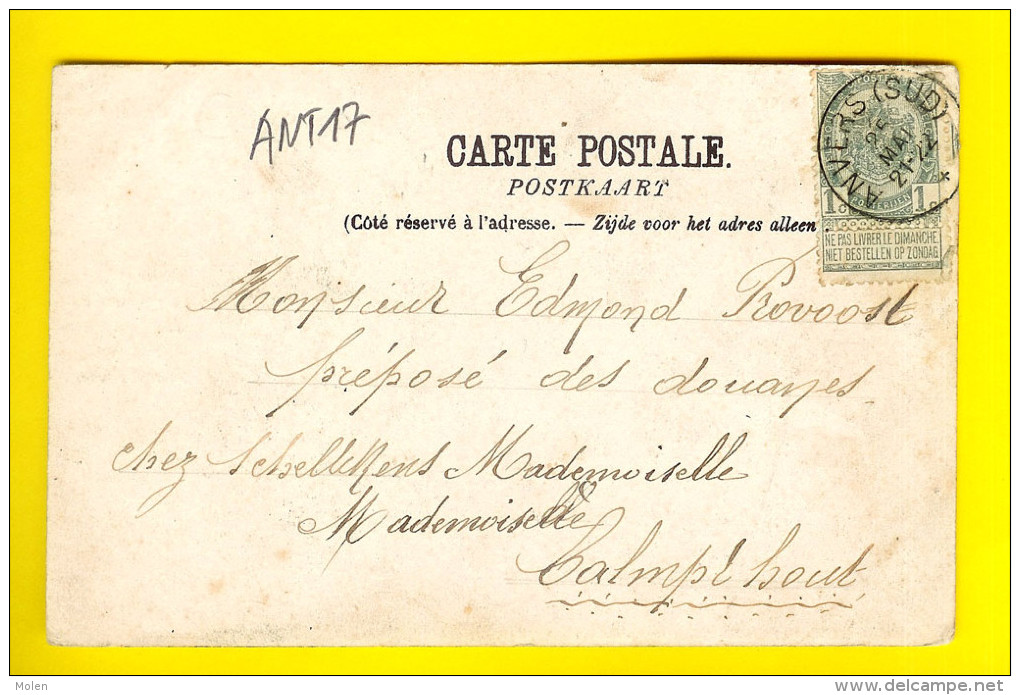 ANT17
CARTE POSTALE.
POSTKAART
(Côté réservé à l'adresse. — Zijde voor het adres alleen.
ANVERS (SUD)
MAI
21-22
POSTERIJEN
1c 1c
NE PAS LIVRER LE DIMANCHE
NIET BESTELLEN OP ZONDAG
Monsieur Edmond Provoost
préposé des douanes
chez Schellekens Mademoiselle
Mademoiselle
Calmpthout
Molen
delcampe.net